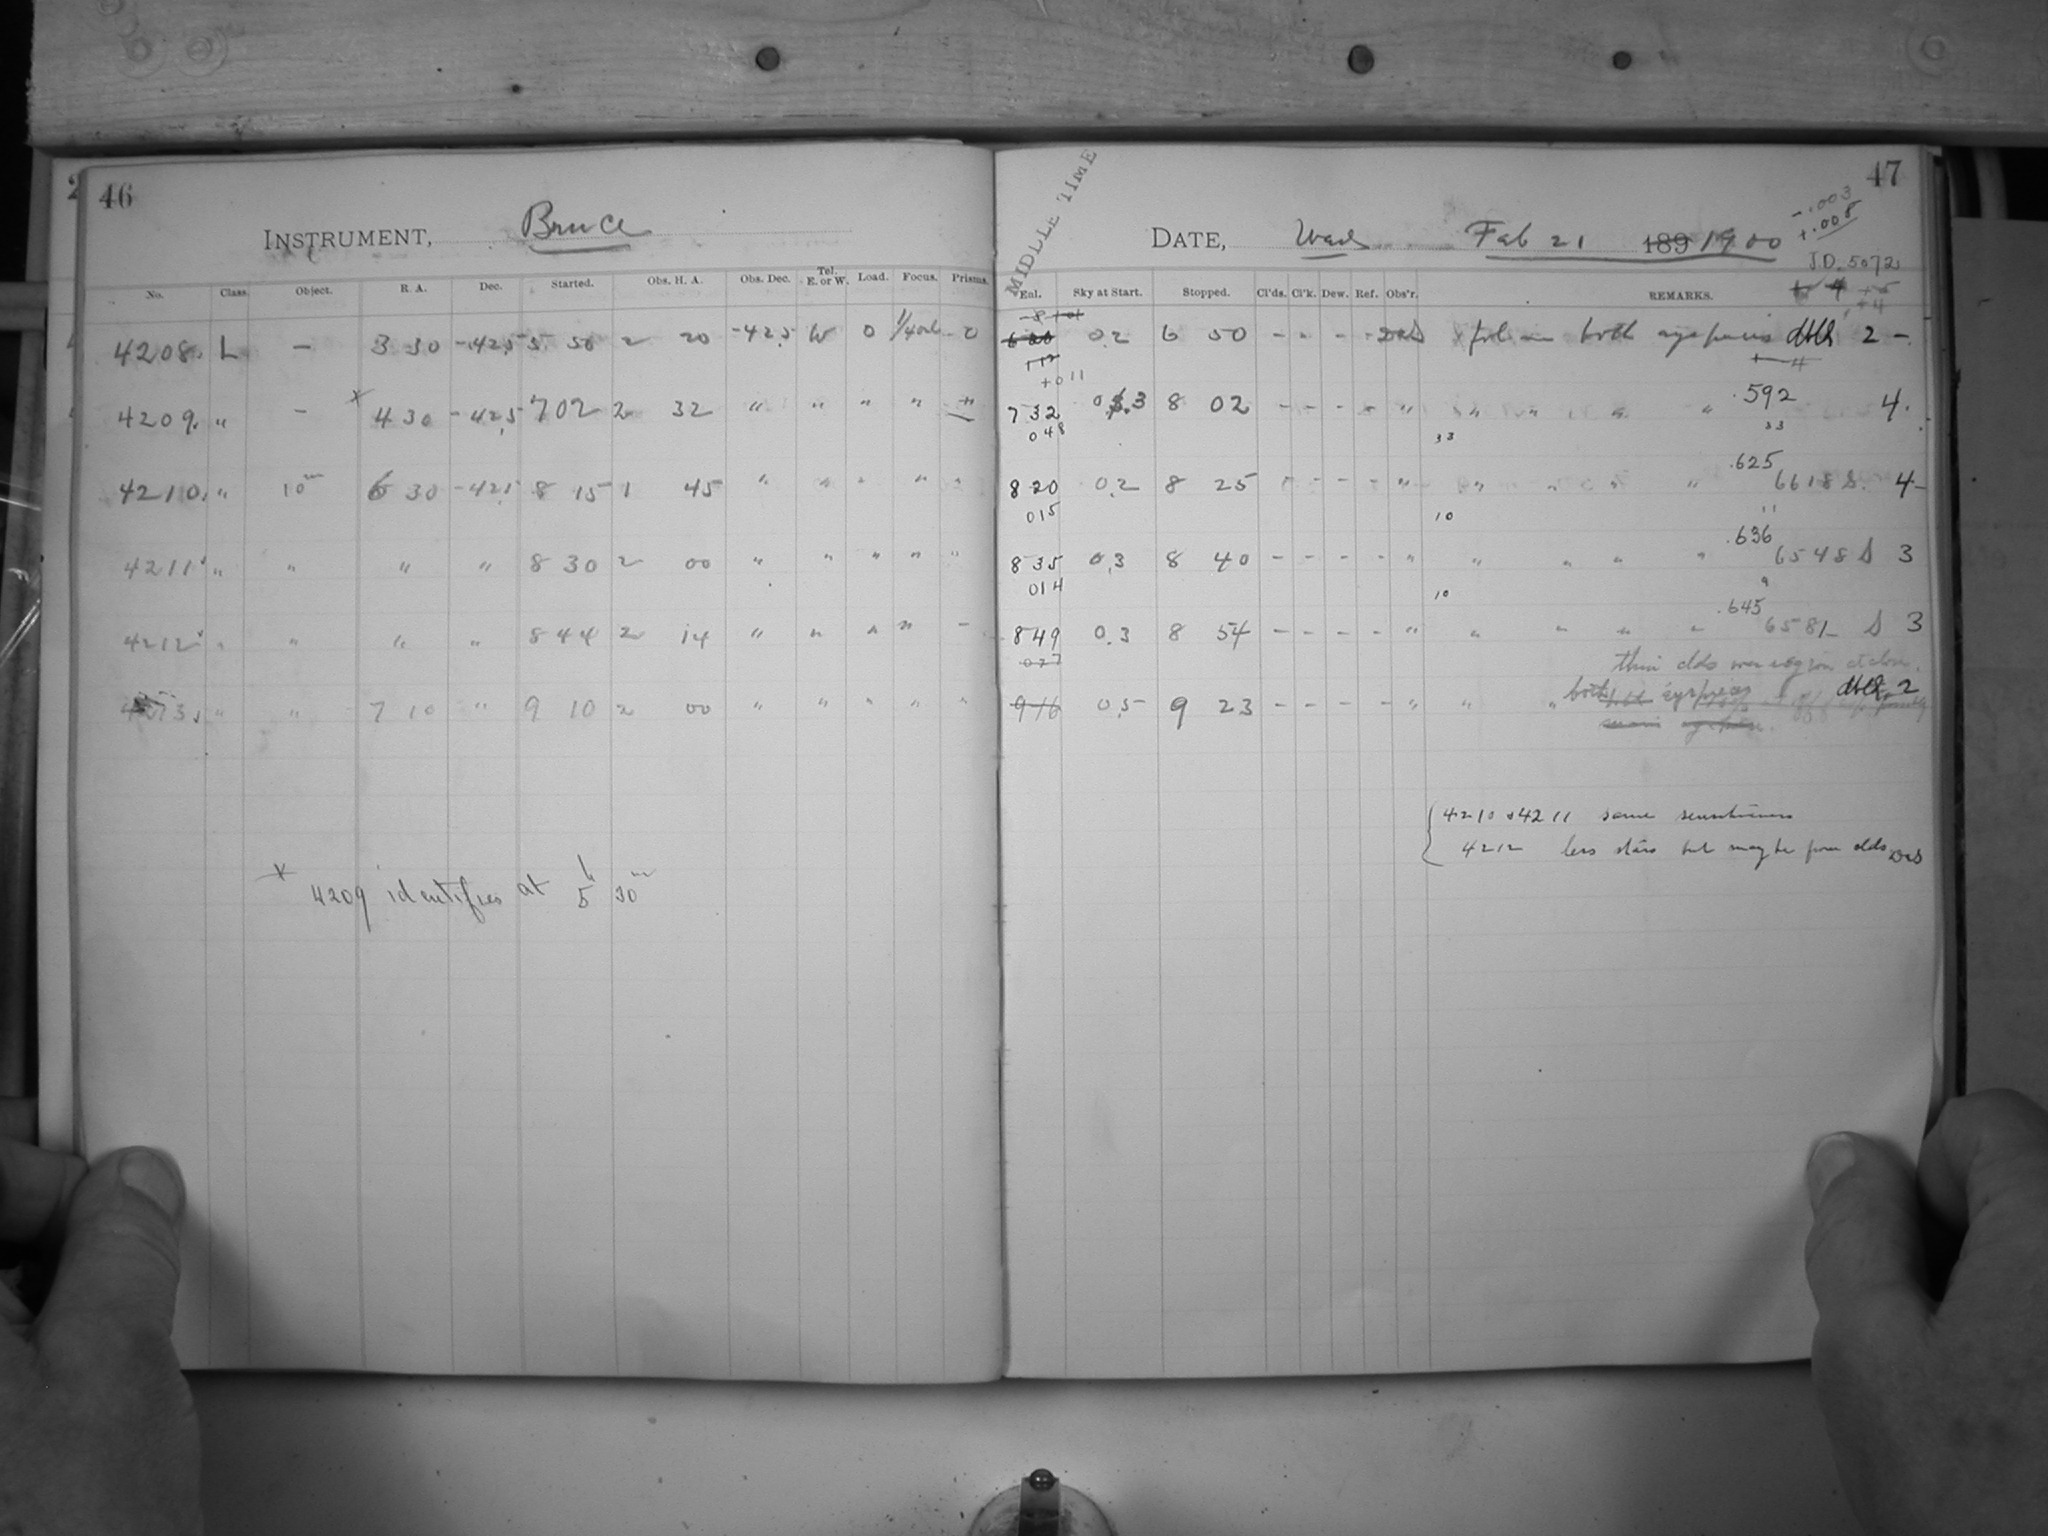 46
INSTRUMENT, Bruce
No. Class. Object. R. A. Dec. Started. Obs. H. A. Obs. Dec. Tel. E. or W. Load. Focus. Prisms.
4208. L — 3 30 -42.5 5 50 2 20 -42.5 W 0 0
4209. " — x 4 30 -42.5 7 02 2 32 " " " " "
4210. " 10m 6 30 -42.5 8 15 1 45 " " " " "
4211. " " " " 8 30 2 00 " " " " "
4212 " " " " 8 44 2 14 " " " " –
4213. " " 7 10 " 9 10 2 00 " " " " "
x 4209 identifies at 5h 30m
47
MIDLE TIME
DATE, Wed Feb 21 189 1900
-.003
+.008
J.D. 5072
Enl. Sky at Start. Stopped. Cl'ds. Cl'k. Dew. Ref. Obs'r. REMARKS.
0.2 6 50 - - - - both dbld 2 -
+011
7 32 0.3 8 02 - - - - " " " " " .592 4.
048 33 33
8 20 0.2 8 25 - - - - " " " " " .625 6618 S. 4-
015 10 11
8 35 0.3 8 40 - - - - " " " " " .636 6548 S 3
014 10 9
8 49 0.3 8 54 - - - - " " " " " .645 6581 S 3
027
thin clds over region at close.
916 0.5 9 23 - - - - " " " both dbld 2
4210 & 4211 same sensitiveness
4212 less stars but may be from clds